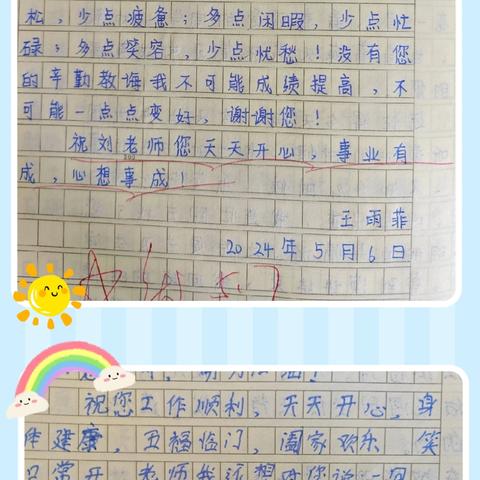 松，少点疲惫；多点闲暇，少点忙
碌；多点笑容，少点忧愁！没有您
的辛勤教诲我不可能成绩提高，不
可能一点点变好，谢谢您！
祝刘老师您天天开心，事业有
成，心想事成！
王雨菲
2024年5月6日
祝您工作顺利，天天开心，身
体建康，五福临门，阖家欢乐，笑
口常开，老师我还想对您说一句